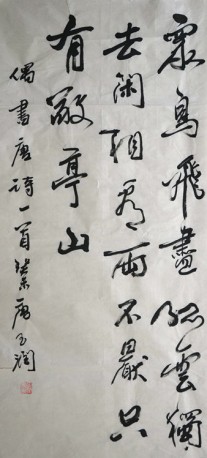 眾鳥飛盡孤雲獨
去閑相看兩不厭只
有敬亭山
偶書唐詩一首